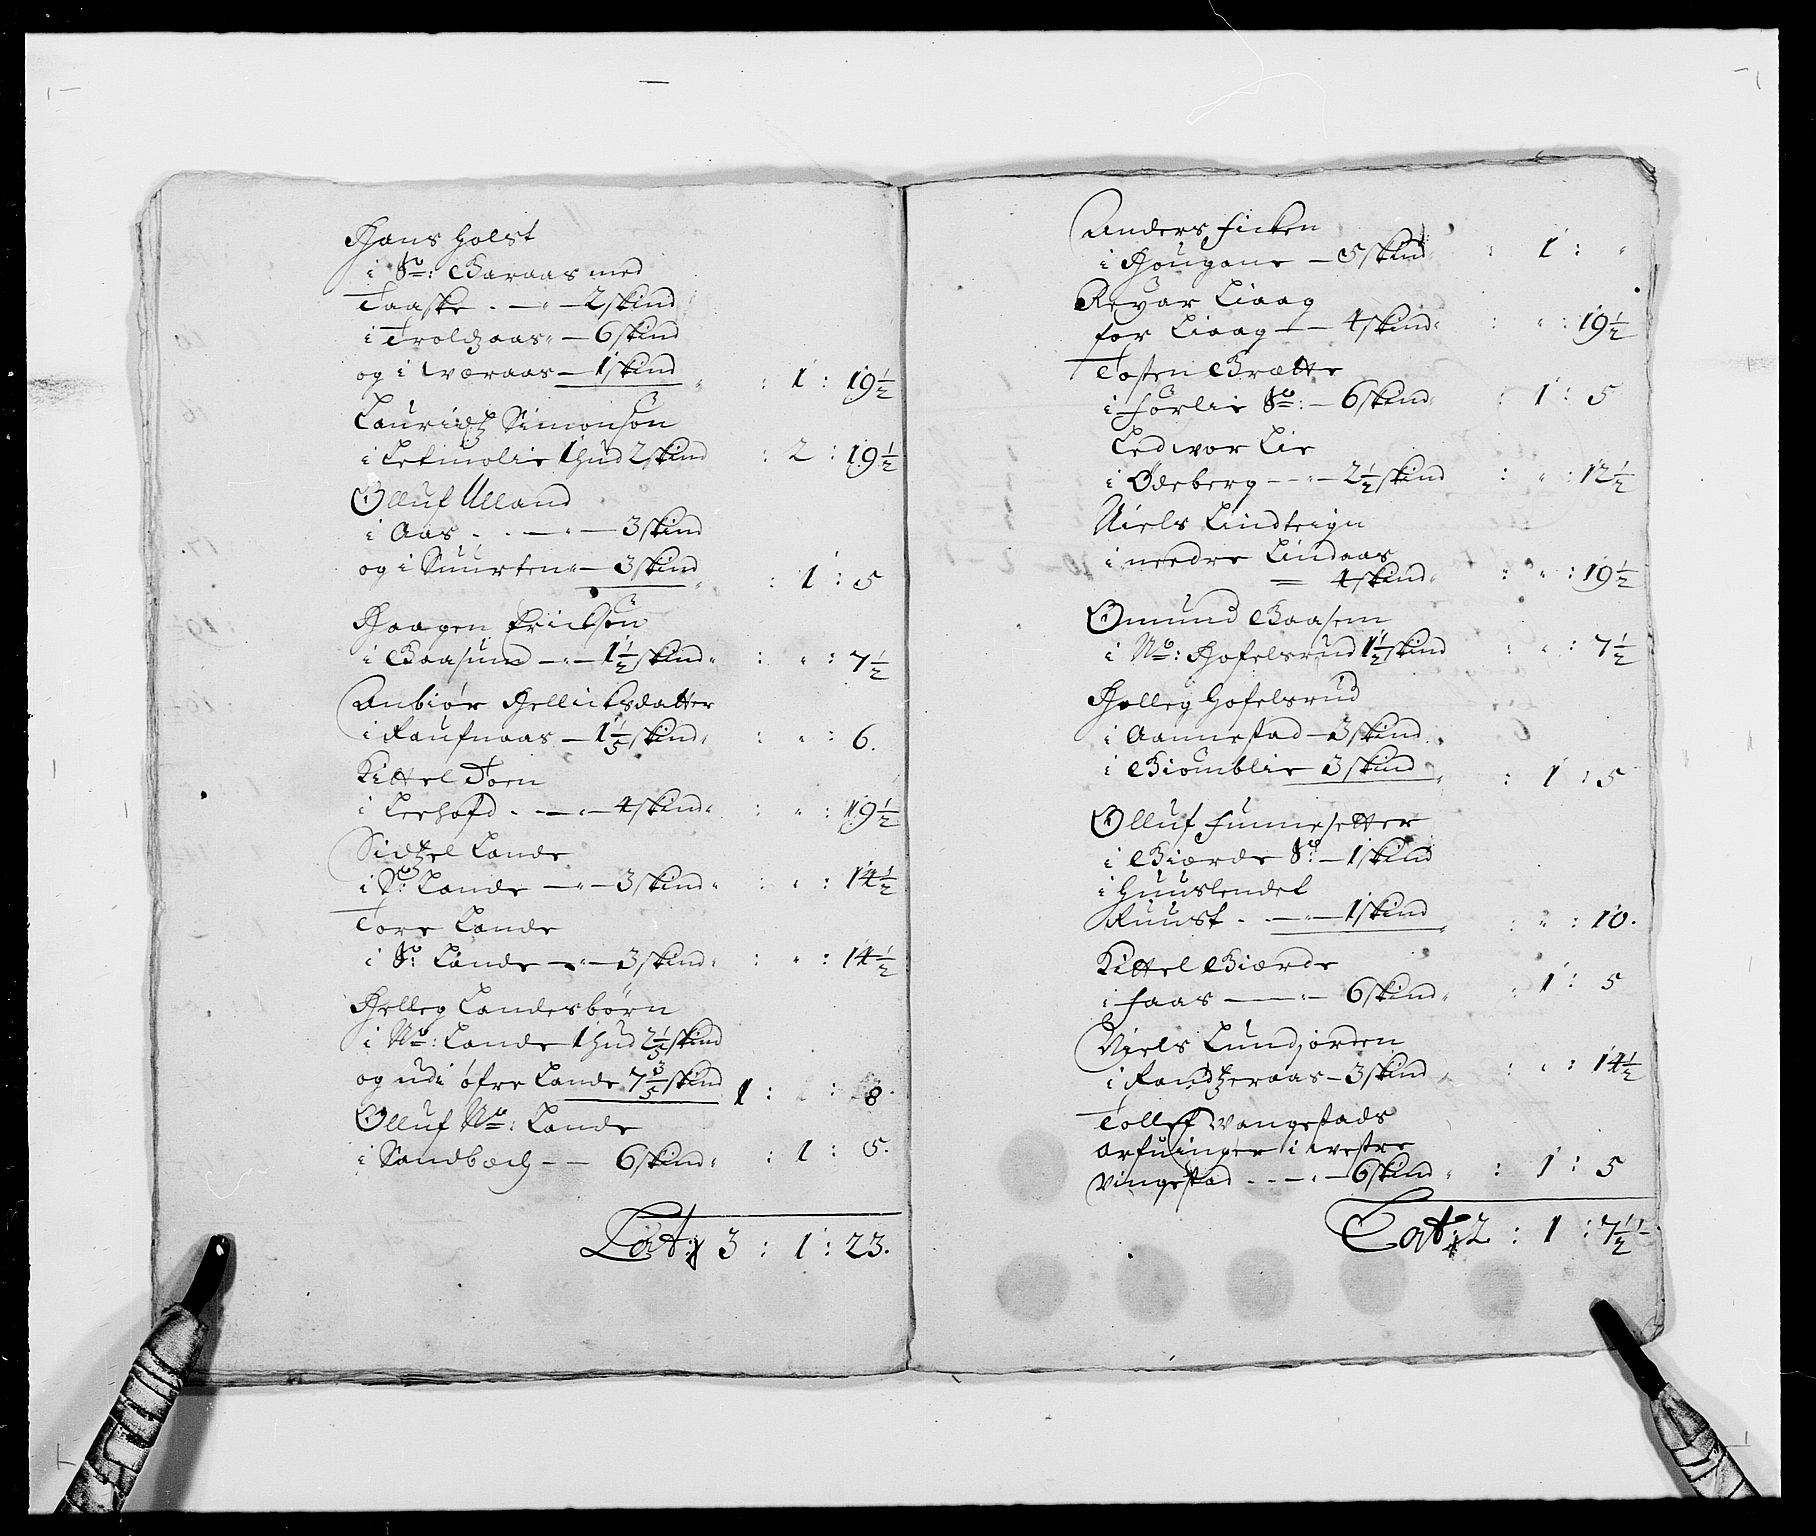 Hans Holst
i Sø: Garaas med
Taaske . — " — 2 skind
i Troldzaas " — 6 skind
og i Wæraas — 1 skind " : 1 : 19½
Lauridtz Simonsøn
i Lefuolie 1 hud 2 skind : 2 : 19½
Olluf Ulland
i Aas . . — " — 3 skind
og i Snurten " — 3 skind " : 1 : 5
Haagen Erichsøn
i Baasum — " — 1½ skind " : " : 7½
Anbiør Hellieksdatter
i Raufnaas — 1 1/5 skind " : " : 6.
Kittel Toen
i Leehofd . — " — 4 skind " : " : 19½
Sidtzel Lande
i Sø: Lande — " — 3 skind " : " : 14½
Tore Lande
i Sø: Lande — " — 3 skind " : " : 14½
Helleg Landesbørn
i No: Lande 1 hud 2 1/5 skind
og udi øfre Lande 7 3/5 skind 1 : : 8.
Olluf No: Lande
i Sandbæch — — 6 skind " : 1 : 5.
Lat: 3 : 1 : 23.
Anders Ficken
i Hougane — 5 skind " : 1 : "
Revar Liaag
for Liaag — 4 skind " : " : 19½
Tosten Brætte
i Førlie Sø: — 6 skind " : 1 : 5
Ledwor Lie
i Ødeberg — " — 2½ skind : " : 12½
Niels Lindteign
i needre Lindaas
= 4 skind " : " : 19½
Omund Baasem
i No: Hofelsrud 1½ skind : " : 7½
Helleg Hofelsrud
i Aannestad — 3 skind "
i Biomblie 3 skind " : 1 : 5
Olluf Finnesetter
i Giærde Sø: — 1 skind
i Huuslendet
Ruust . — " — 1 skind " : " : 10.
Kittel Giærde
i Faas — — " — 6 skind " : 1 : 5
Niels Lundjorden
i Randtzeraas — 3 skind " : " : 14½
Tollef Wangestads
arfuinger i westre
Vingestad . . — " — 6 skind " : 1 : 5
Lat: 2 : 1 : 7½